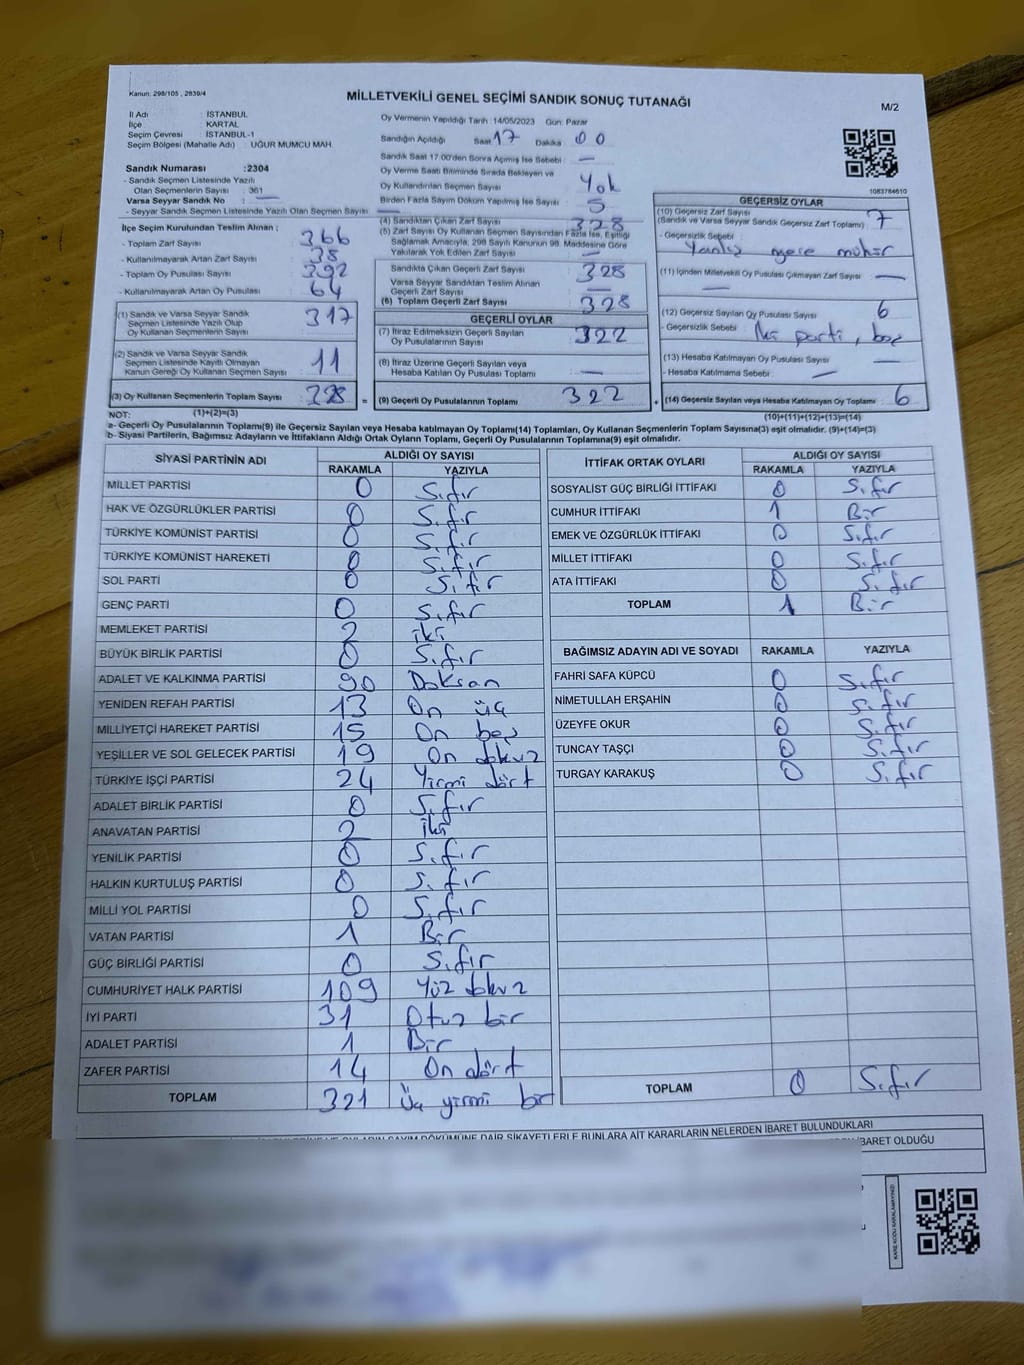 Kanun: 298/105 , 2839/4
MİLLETVEKİLİ GENEL SEÇİMİ SANDIK SONUÇ TUTANAĞI
M/2
İl Adı : İSTANBUL
İlçe : KARTAL
Seçim Çevresi : İSTANBUL-1
Seçim Bölgesi (Mahalle Adı) : UĞUR MUMCU MAH.
Oy Vermenin Yapıldığı Tarih :14/05/2023 Gün: Pazar
Sandığın Açıldığı Saat 17 Dakika 00
Sandık Saat 17.00'den Sonra Açılmış İse Sebebi : —
Oy Verme Saati Bitiminde Sırada Bekleyen ve
Oy Kullandırılan Seçmen Sayısı : Yok
Birden Fazla Sayım Döküm Yapılmış İse Sayısı : 5
1083784610
Sandık Numarası :2304
- Sandık Seçmen Listesinde Yazılı
Olan Seçmenlerin Sayısı : 361
Varsa Seyyar Sandık No : —
- Seyyar Sandık Seçmen Listesinde Yazılı Olan Seçmen Sayısı : —
İlçe Seçim Kurulundan Teslim Alınan ;
- Toplam Zarf Sayısı : 366
- Kullanılmayarak Artan Zarf Sayısı : 38
- Toplam Oy Pusulası Sayısı : 392
- Kullanılmayarak Artan Oy Pusulası : 64
(1) Sandık ve Varsa Seyyar Sandık
Seçmen Listesinde Yazılı Olup
Oy Kullanan Seçmenlerin Sayısı : 317
(2) Sandık ve Varsa Seyyar Sandık
Seçmen Listesinde Kayıtlı Olmayan
Kanun Gereği Oy Kullanan Seçmen Sayısı : 11
(3) Oy Kullanan Seçmenlerin Toplam Sayısı : 328
(4) Sandıktan Çıkan Zarf Sayısı : 328
(5) Zarf Sayısı Oy Kullanan Seçmen Sayısından Fazla İse, Eşitliği
Sağlamak Amacıyla, 298 Sayılı Kanunun 98. Maddesine Göre
Yakılarak Yok Edilen Zarf Sayısı : —
Sandıkta Çıkan Geçerli Zarf Sayısı : 328
Varsa Seyyar Sandıktan Teslim Alınan
Geçerli Zarf Sayısı : —
(6) Toplam Geçerli Zarf Sayısı : 328
GEÇERLİ OYLAR
(7) İtiraz Edilmeksizin Geçerli Sayılan
Oy Pusulalarının Sayısı : 322
(8) İtiraz Üzerine Geçerli Sayılan veya
Hesaba Katılan Oy Pusulası Toplamı : —
= (9) Geçerli Oy Pusulalarının Toplamı : 322
GEÇERSİZ OYLAR
(10) Geçersiz Zarf Sayısı
(Sandık ve Varsa Seyyar Sandık Geçersiz Zarf Toplamı) : 7
- Geçersizlik Sebebi :
Yanlız yere mühür
(11) İçinden Milletvekili Oy Pusulası Çıkmayan Zarf Sayısı : —
—
(12) Geçersiz Sayılan Oy Pusulası Sayısı : 6
- Geçersizlik Sebebi : İki parti, boş
(13) Hesaba Katılmayan Oy Pusulası Sayısı : —
- Hesaba Katılmama Sebebi : —
+ (14) Geçersiz Sayılan veya Hesaba Katılmayan Oy Toplamı : 6
NOT: (1)+(2)=(3) (10)+(11)+(12)+(13)=(14)
a- Geçerli Oy Pusulalarının Toplamı(9) ile Geçersiz Sayılan veya Hesaba katılmayan Oy Toplamı(14) Toplamları, Oy Kullanan Seçmenlerin Toplam Sayısına(3) eşit olmalıdır. (9)+(14)=(3)
b- Siyasi Partilerin, Bağımsız Adayların ve İttifakların Aldığı Ortak Oyların Toplamı, Geçerli Oy Pusulalarının Toplamına(9) eşit olmalıdır.
SİYASİ PARTİNİN ADI ALDIĞI OY SAYISI
RAKAMLA YAZIYLA
MİLLET PARTİSİ 0 Sıfır
HAK VE ÖZGÜRLÜKLER PARTİSİ 0 Sıfır
TÜRKİYE KOMÜNİST PARTİSİ 0 Sıfır
TÜRKİYE KOMÜNİST HAREKETİ 0 Sıfır
SOL PARTİ 0 Sıfır
GENÇ PARTİ 0 Sıfır
MEMLEKET PARTİSİ 2 iki
BÜYÜK BİRLİK PARTİSİ 0 Sıfır
ADALET VE KALKINMA PARTİSİ 90 Doksan
YENİDEN REFAH PARTİSİ 13 On üç
MİLLİYETÇİ HAREKET PARTİSİ 15 On beş
YEŞİLLER VE SOL GELECEK PARTİSİ 19 On dokuz
TÜRKİYE İŞÇİ PARTİSİ 24 Yirmi dört
ADALET BİRLİK PARTİSİ 0 Sıfır
ANAVATAN PARTİSİ 2 iki
YENİLİK PARTİSİ 0 Sıfır
HALKIN KURTULUŞ PARTİSİ 0 Sıfır
MİLLİ YOL PARTİSİ 0 Sıfır
VATAN PARTİSİ 1 Bir
GÜÇ BİRLİĞİ PARTİSİ 0 Sıfır
CUMHURİYET HALK PARTİSİ 109 Yüz dokuz
İYİ PARTİ 31 Otuz bir
ADALET PARTİSİ 1 Bir
ZAFER PARTİSİ 14 On dört
TOPLAM 321 Üç yirmi bir
İTTİFAK ORTAK OYLARI ALDIĞI OY SAYISI
RAKAMLA YAZIYLA
SOSYALİST GÜÇ BİRLİĞİ İTTİFAKI 0 Sıfır
CUMHUR İTTİFAKI 1 Bir
EMEK VE ÖZGÜRLÜK İTTİFAKI 0 Sıfır
MİLLET İTTİFAKI 0 Sıfır
ATA İTTİFAKI 0 Sıfır
TOPLAM 1 Bir
BAĞIMSIZ ADAYIN ADI VE SOYADI RAKAMLA YAZIYLA
FAHRİ SAFA KÜPCÜ 0 Sıfır
NİMETULLAH ERŞAHİN 0 Sıfır
ÜZEYFE OKUR 0 Sıfır
TUNCAY TAŞÇI 0 Sıfır
TURGAY KARAKUŞ 0 Sıfır
TOPLAM 0 Sıfır
SAYIM DÖKÜMÜNE DAİR ŞİKAYETLERLE BUNLARA AİT KARARLARIN NELERDEN İBARET BULUNDUKLARI
İBARET OLDUĞU